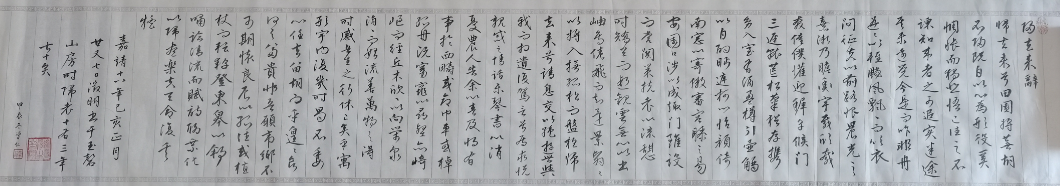 歸去来辭
歸去来兮田園將蕪胡
不歸既自以心為形役奚
惆悵而獨悲悟已往之不
諫知来者之可追實迷途
其未遠覺今是而昨非舟
遥遥以輕颺風飄飄而吹衣
問征夫以前路恨晨光之
熹微乃瞻衡宇載欣載
奔僮僕歡迎稚子候門
三逕就荒松菊猶存携
幼入室有酒盈樽引壺觴
以自酌眄庭柯以怡顔倚
南窗以寄傲審容膝之易
安園日涉以成趣門雖設
而常關策扶老以流憩
時矯首而遐觀雲無心以出
岫鳥倦飛而知還景翳翳
以將入撫孤松而盤桓歸
去来兮請息交以絶游世與
我而相遺復駕言兮焉求悦
親戚之情話樂琴書以消
憂農人告余以春及將有
事於西疇或命巾車或棹
孤舟既窈窕以尋壑亦崎
嶇而經丘木欣欣以向榮泉
涓涓而始流善萬物之得
時感吾生之行休已矣乎寓
形宇内復幾時曷不委
心任去留胡為乎遑遑欲
何之富貴非吾願帝鄉不
可期懷良辰以孤往或植
杖而耘耔登東皋以舒
嘯臨清流而賦詩聊乘化
以歸盡樂夫天命復奚
疑
嘉靖年辛亥正月
廿又七日徵明書于玉磬
山房時